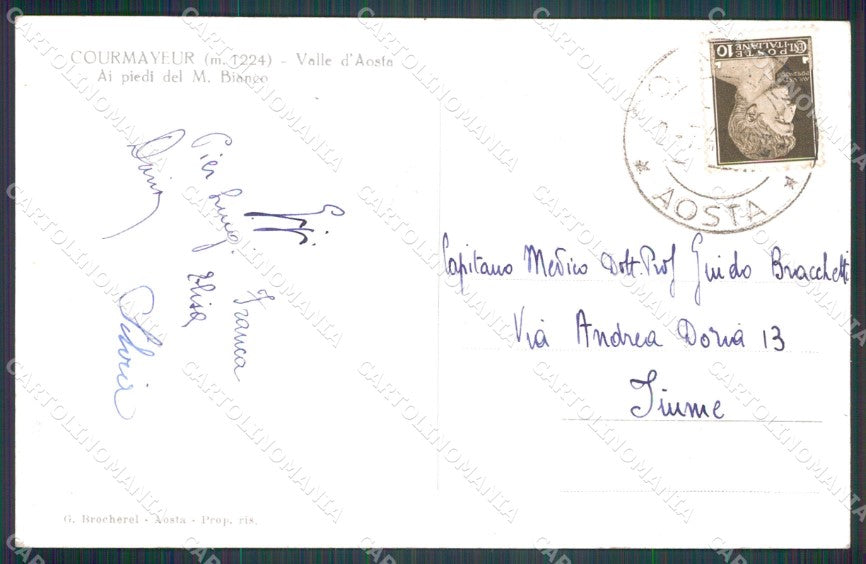 COURMAYEUR (m. 1224) - Valle d'Aosta
Ai piedi del M. Bianco
10 POSTE ITALIANE
AOSTA
Capitano Medico Dott. Prof Guido Bracchetti
Via Andrea Doria 13
Fiume
Pier Luigi
Franca
Elisa
Silvia
G. Brocherel - Aosta - Prop. ris.
CARTOLINOMANIA